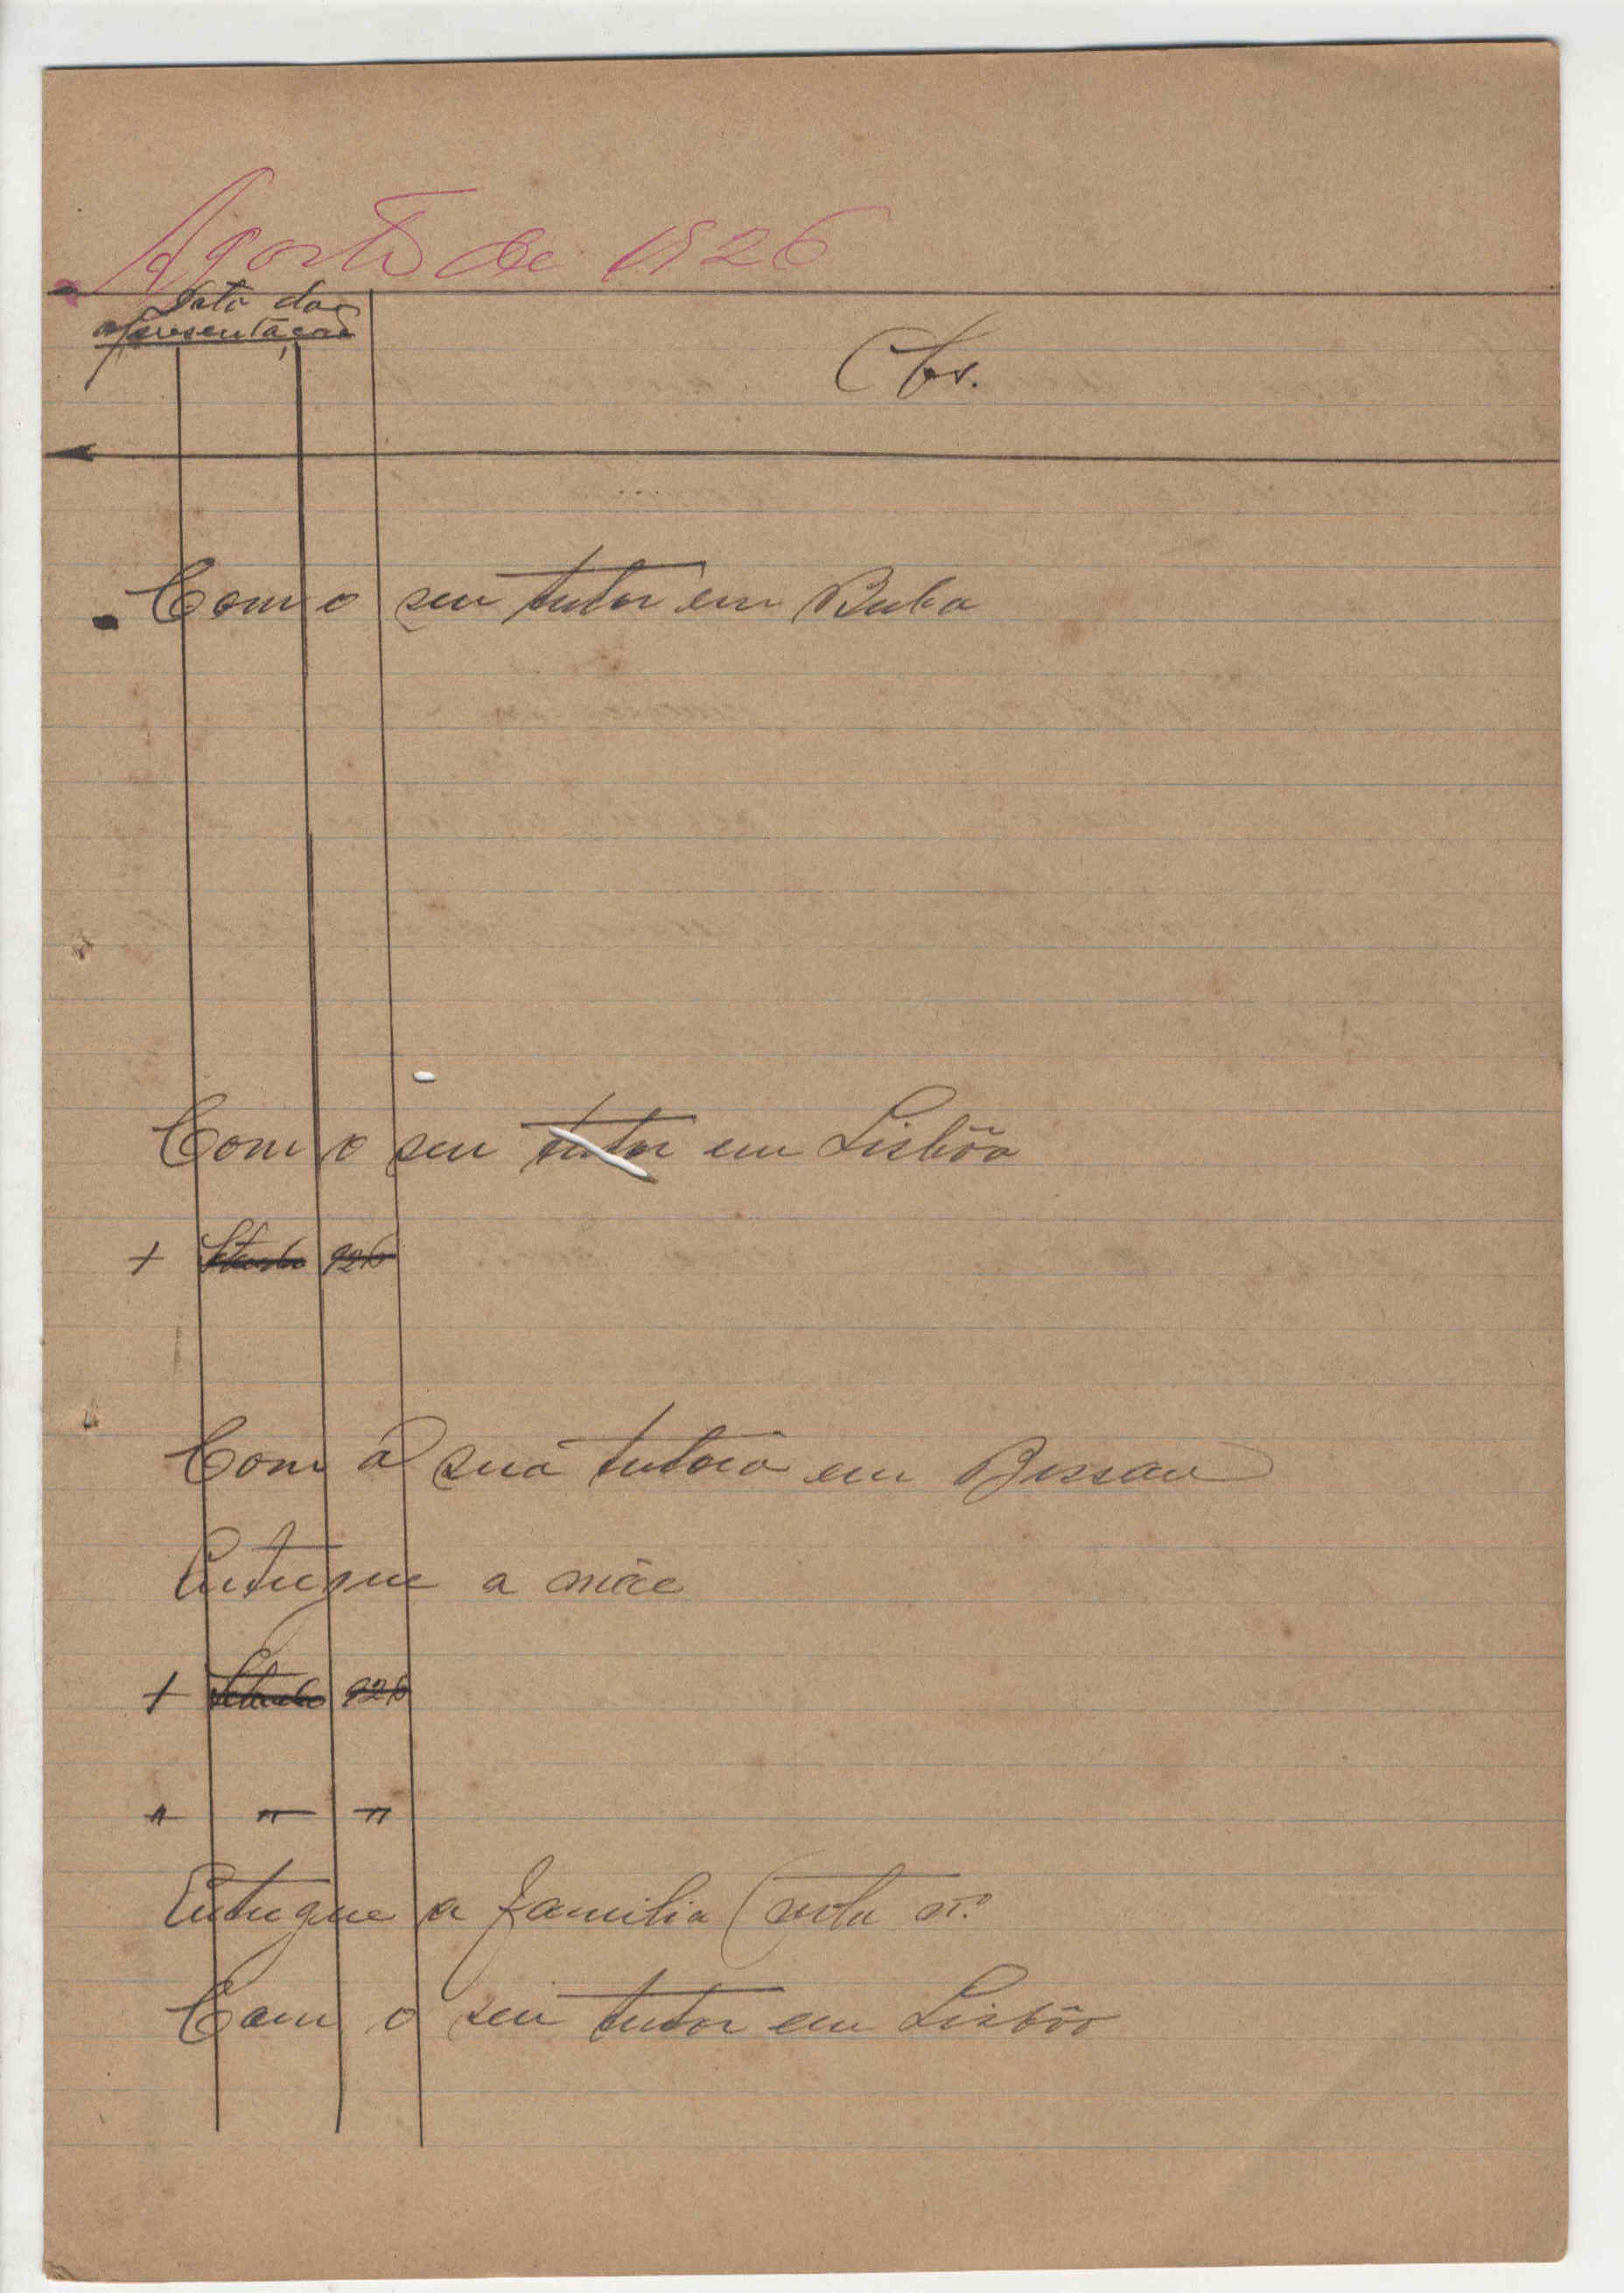 Agosto de 1926
Data da
apresentação
Obs.
Com o seu tutor em Buba
Com o seu tutor em Lisbôa
+ Setembro 926
Com a sua tutora em Bissau
Entregue a mãe
+ Setembro 926
" " "
Entregue a familia (nota n.º
Com o seu tutor em Lisbôa